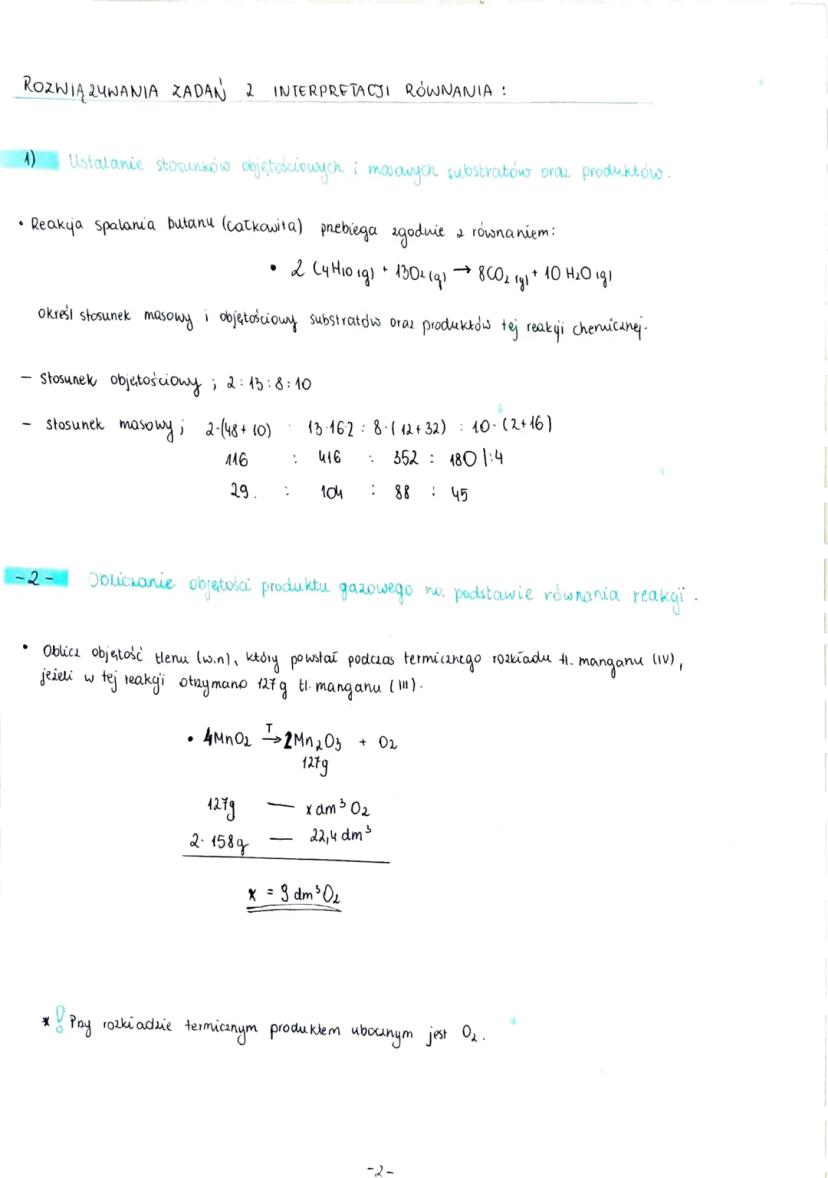 ROZWIĄZYWANIA ZADAŃ Z INTERPRETACJI RÓWNANIA :
1) Ustalanie stosunków objętościowych i masowych substratów oraz produktów.
• Reakcja spalania butanu (całkowita) przebiega zgodnie z równaniem:
• 2 C4H10 (g) + 13O2 (g) → 8CO2 (g) + 10 H2O (g)
Określ stosunek masowy i objętościowy substratów oraz produktów tej reakcji chemicznej.
– Stosunek objętościowy ; 2 : 13 : 8 : 10
– stosunek masowy ; 2·(48+10) : 13·16·2 : 8·(12+32) : 10·(2+16)
116 : 416 : 352 : 180 |:4
29. : 104 : 88 : 45
-2- Obliczanie objętości produktu gazowego na podstawie równania reakcji.
• Oblicz objętość tlenu (w.n), który powstał podczas termicznego rozkładu tl. manganu (IV),
jeżeli w tej reakcji otrzymano 127g tl. manganu (III).
• 4MnO2 T→ 2Mn2O3 + O2
127g
127g — x dm³ O2
2·158g — 22,4 dm³
x = 9 dm³ O2
* ! Przy rozkładzie termicznym produktem ubocznym jest O2.
-2-